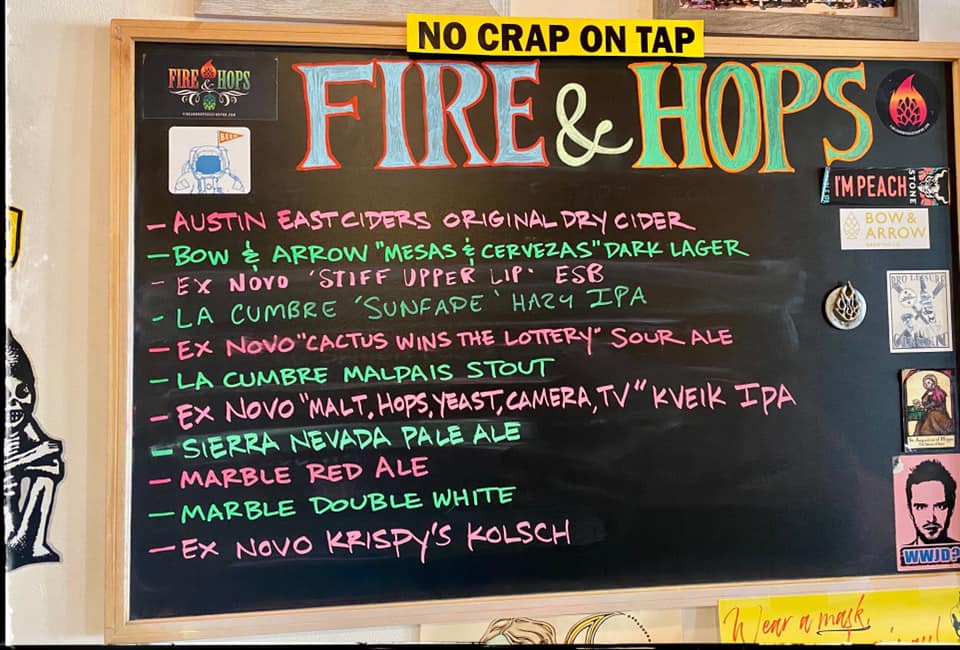 NO CRAP ON TAP
FIRE & HOPS
FIRE & HOPS
BEER
I'M PEACH
STONE
BOW &
ARROW
- AUSTIN EASTCIDERS ORIGINAL DRY CIDER
- BOW & ARROW "MESAS & CERVEZAS" DARK LAGER
- EX NOVO 'STIFF UPPER LIP' ESB
- LA CUMBRE 'SUNFADE' HAZY IPA
- EX NOVO "CACTUS WINS THE LOTTERY" SOUR ALE
- LA CUMBRE MALPAIS STOUT
- EX NOVO "MALT, HOPS, YEAST, CAMERA, TV" KVEIK IPA
- SIERRA NEVADA PALE ALE
- MARBLE RED ALE
- MARBLE DOUBLE WHITE
- EX NOVO KRISPY'S KOLSCH
WWJD?
Wear a mask,